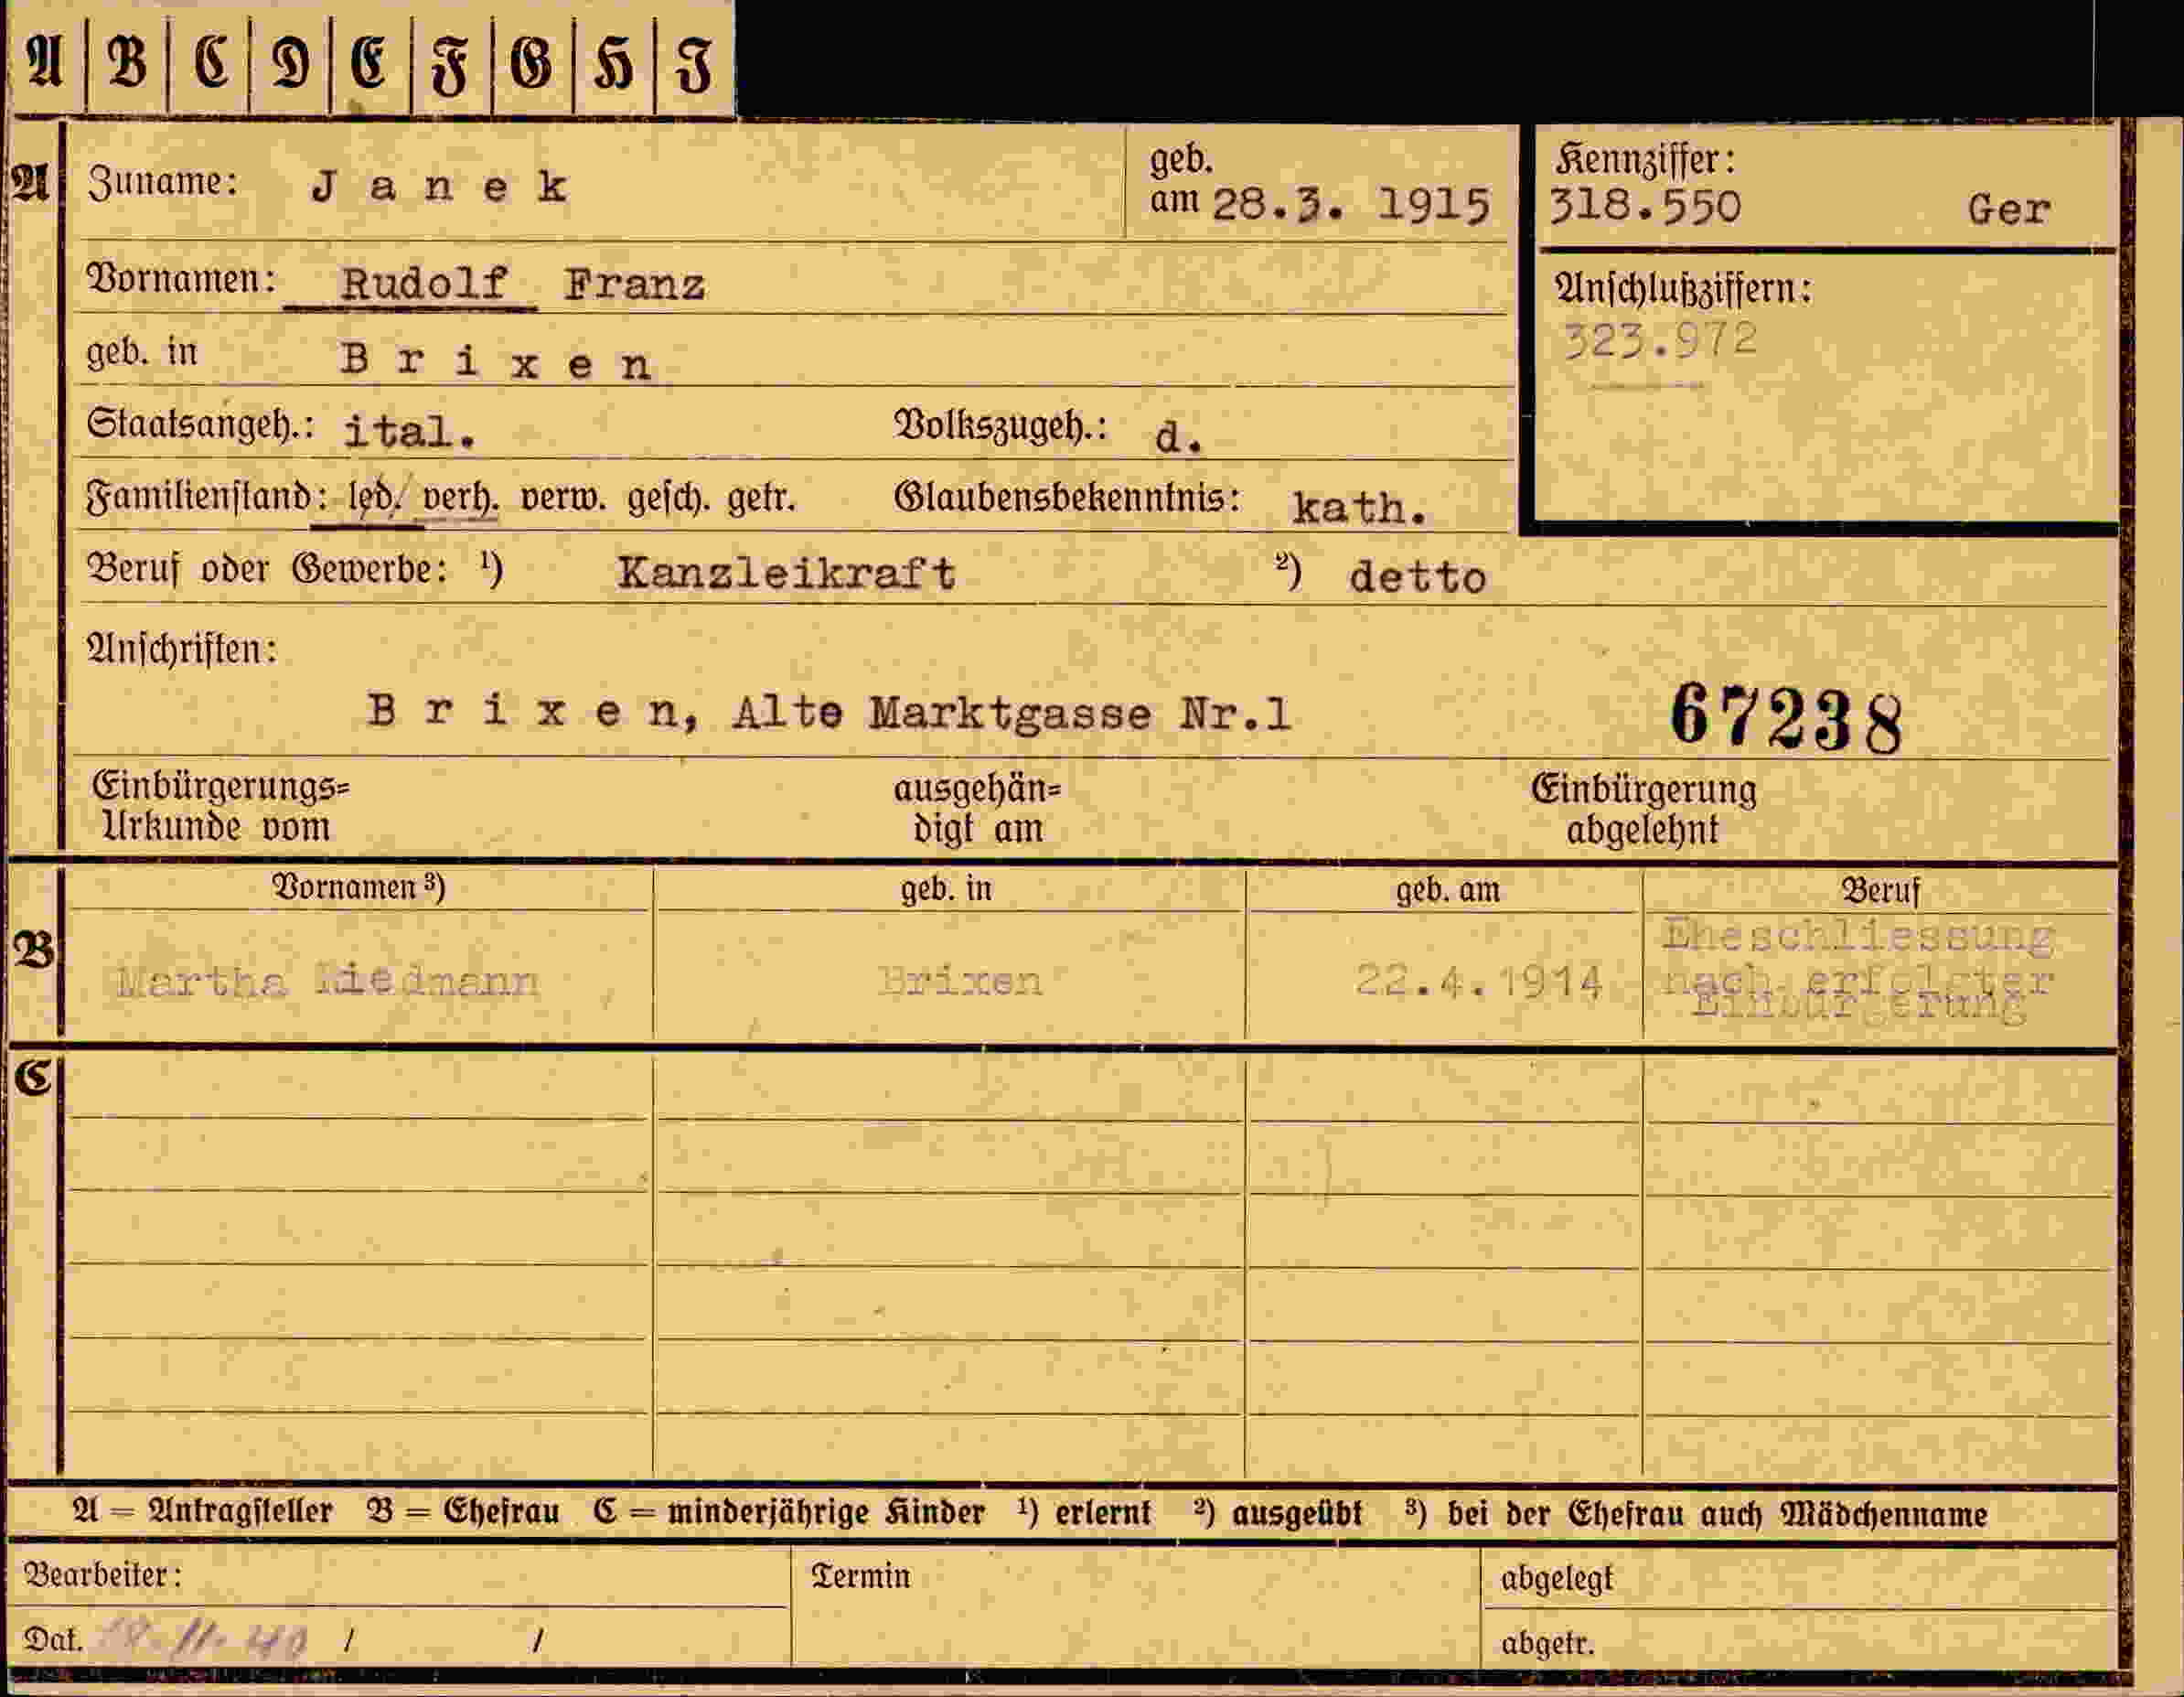 A B C D E F G H I
A Zuname: Janek geb. am 28.3. 1915 Kennziffer: 318.550 Ger
Vornamen: Rudolf Franz Anschlußziffern: 323.972
geb. in Brixen
Staatsangeh.: ital. Volkszugeh.: d.
Familienstand: led. verh. verw. gesch. getr. Glaubensbekenntnis: kath.
Beruf oder Gewerbe: ¹) Kanzleikraft ²) detto
Anschriften:
Brixen, Alte Marktgasse Nr.1 67238
Einbürgerungs= ausgehän= Einbürgerung
Urkunde vom digt am abgelehnt
B Vornamen ³) geb. in geb. am Beruf
Martha Riedmann Brixen 22.4.1914 Eheschliessung
nach erfolgter
Einbürgerung
C
A = Antragsteller B = Ehefrau C = minderjährige Kinder ¹) erlernt ²) ausgeübt ³) bei der Ehefrau auch Mädchenname
Bearbeiter: Termin abgelegt
Dat. 11. 40 / / abgetr.